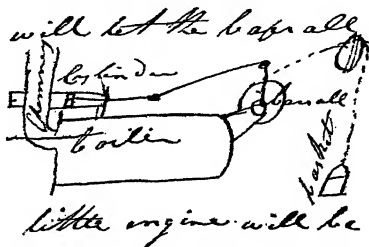 will let the bapsall
Chimney
Cylinder
bapsall
boiler
basket
little engine will be